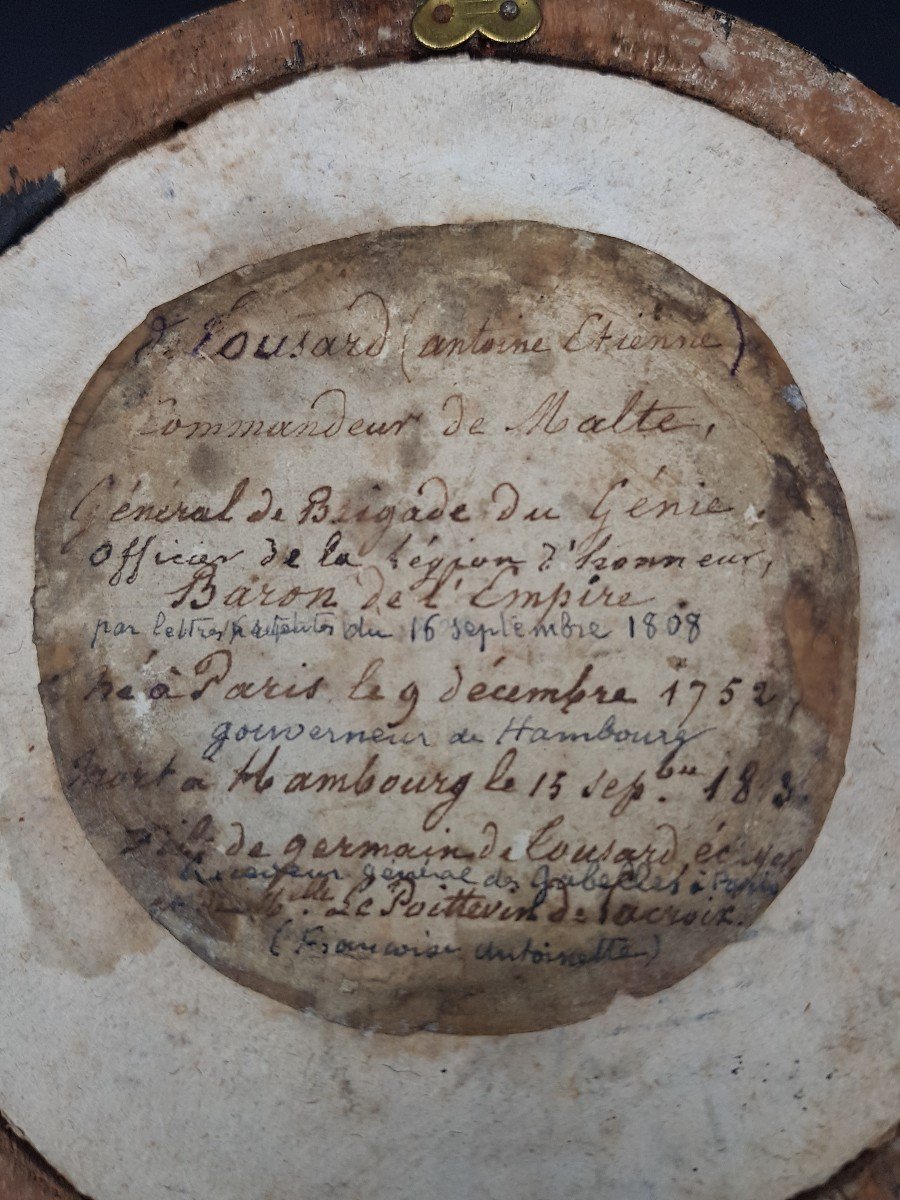 de Tousard (antoine Etienne)
Commandeur de Malte,
Général de Brigade du Génie.
Officier de la Légion d'honneur,
Baron de l'Empire.
par lettres patentes du 16 septembre 1808
né à Paris le 9 décembre 1752,
gouverneur de Hambourg
Mort à Hambourg le 15 sep.bre
fils de germain de Tousard, écuyer
Receveur général des Gabelles à Paris
de Mlle Le Poittevin de Lacroix.
(Françoise antoinette)